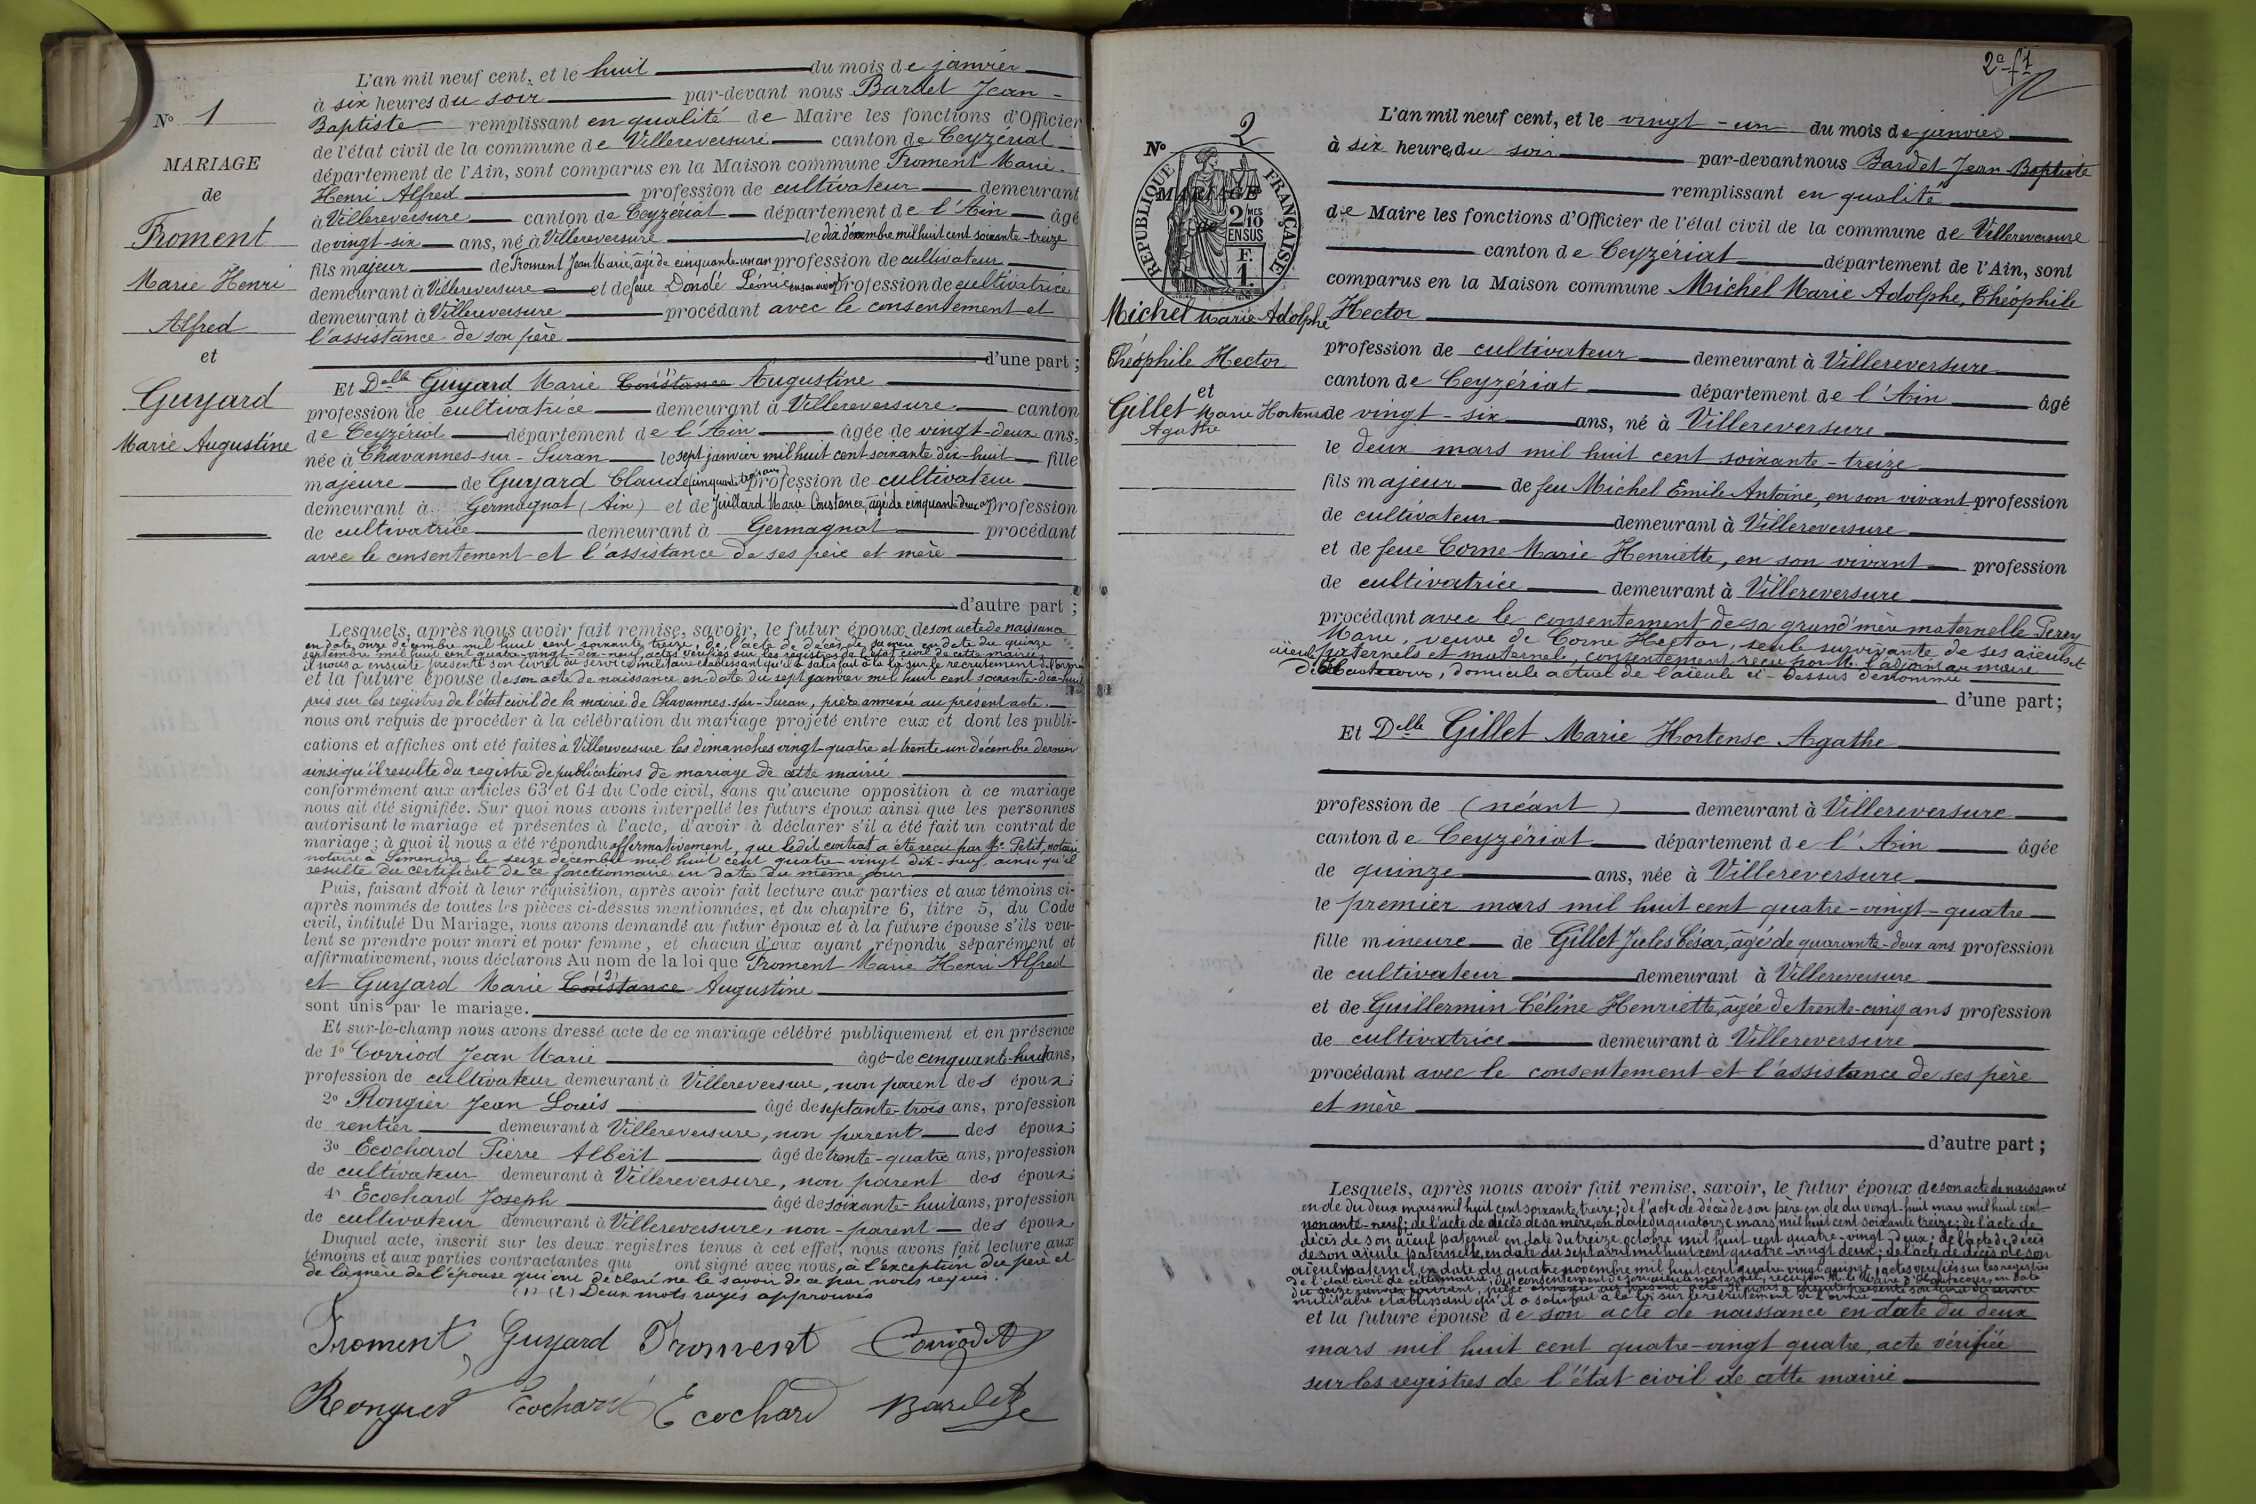 L'an mil neuf cent, et le huit du mois de janvier
à six heures du soir par-devant nous Bardet Jean-
N° 1
Baptiste remplissant en qualité de Maire les fonctions d'Officier
de l'état civil de la commune de Villereversure canton de Ceyzériat
MARIAGE
département de l'Ain, sont comparus en la Maison commune Froment Marie
de
Henri Alfred profession de cultivateur demeurant
à Villereversure canton de Ceyzériat département de l'Ain âgé
Froment
de vingt-six ans, né à Villereversure le dix décembre mil huit cent soixante-treize
fils majeur de Froment Jean Marie, âgé de cinquante-un an profession de cultivateur
Marie Henri
demeurant à Villereversure et de feue Dondé Léonie en son vivant profession de cultivatrice
demeurant à Villereversure procédant avec le consentement et
Alfred
l'assistance de son père
et
d'une part ;
Et Delle Guyard Marie Constance Augustine
Guyard
profession de cultivatrice demeurant à Villereversure canton
de Ceyzériat département de l'Ain âgée de vingt-deux ans,
Marie Augustine
née à Chavannes-sur-Suran le sept janvier mil huit cent soixante dix-huit fille
majeure de Guyard Claude profession de cultivateur
demeurant à Germagnat (Ain) et de Juillard Marie Constance, âgée de cinquante-deux ans profession
de cultivatrice demeurant à Germagnat procédant
avec le consentement et l'assistance de ses père et mère
d'autre part ;
Lesquels, après nous avoir fait remise, savoir, le futur époux de son acte de naissance
en date onze décembre mil huit cent soixante treize, de l'acte de décès de sa mère en date du quinze
septembre mil huit cent quatre-vingt-dix-neuf, actes vérifiés sur les registres de l'état civil de cette mairie,
il nous a ensuite présenté son livret du service militaire établissant qu'il a satisfait à la loi sur le recrutement de l'armée
et la future épouse de son acte de naissance en date du sept janvier mil huit cent soixante-dix-huit
pris sur les registres de l'état civil de la mairie de Chavannes-sur-Suran, pièce annexée au présent acte.
nous ont requis de procéder à la célébration du mariage projeté entre eux et dont les publi-
cations et affiches ont été faites à Villereversure les dimanches vingt-quatre et trente-un décembre dernier
ainsi qu'il résulte du registre de publications de mariage de cette mairie
conformément aux articles 63 et 64 du Code civil, sans qu'aucune opposition à ce mariage
nous ait été signifiée. Sur quoi nous avons interpellé les futurs époux ainsi que les personnes
autorisant le mariage et présentes à l'acte, d'avoir à déclarer s'il a été fait un contrat de
mariage ; à quoi il nous a été répondu affirmativement, que ledit contrat a été reçu par Me Petit, notaire
notaire à Simandre le seize décembre mil huit cent quatre vingt dix-neuf ainsi qu'il
résulte du certificat de ce fonctionnaire en date du même jour
Puis, faisant droit à leur réquisition, après avoir fait lecture aux parties et aux témoins ci-
après nommés de toutes les pièces ci-dessus mentionnées, et du chapitre 6, titre 5, du Code
civil, intitulé Du Mariage, nous avons demandé au futur époux et à la future épouse s'ils veu-
lent se prendre pour mari et pour femme, et chacun d'eux ayant répondu séparément et
affirmativement, nous déclarons Au nom de la loi que Froment Marie Henri Alfred
et Guyard Marie Constance Augustine
sont unis par le mariage.
Et sur-le-champ nous avons dressé acte de ce mariage célébré publiquement et en présence
de 1° Corriod Jean Marie âgé de cinquante-huit ans,
profession de cultivateur demeurant à Villereversure, non parent des époux ;
2° Rongier Jean Louis âgé de septante-trois ans, profession
de rentier demeurant à Villereversure, non parent des époux ;
3° Ecochard Pierre Albert âgé de trente-quatre ans, profession
de cultivateur demeurant à Villereversure, non parent des époux ;
4° Ecochard Joseph âgé de soixante-huit ans, profession
de cultivateur demeurant à Villereversure, non-parent des époux
Duquel acte, inscrit sur les deux registres tenus à cet effet, nous avons fait lecture aux
témoins et aux parties contractantes qui ont signé avec nous, à l'exception du père et
de la mère de l'épouse qui ont déclaré ne le savoir de ce par nous requis.
(1) (2) Deux mots rayés approuvés
Froment Guyard Froment Corriod
Rongier Ecochard Ecochard Bardet
2e f 1
L'an mil neuf cent, et le vingt-un du mois de janvier
N° 2
à six heures du soir par-devant nous Bardet Jean Baptiste
RÉPUBLIQUE FRANÇAISE
2 MES 10 EN SUS
F. 1.
MARIAGE
de
remplissant en qualité
de Maire les fonctions d'Officier de l'état civil de la commune de Villereversure
canton de Ceyzériat département de l'Ain, sont
comparus en la Maison commune Michel Marie Adolphe, Théophile
Michel Marie Adolphe
Hector
Théophile Hector
profession de cultivateur demeurant à Villereversure
et
canton de Ceyzériat département de l'Ain âgé
Gillet Marie Hortense
Agathe
de vingt-six ans, né à Villereversure
le deux mars mil huit cent soixante-treize
fils majeur de feu Michel Emile Antoine, en son vivant profession
de cultivateur demeurant à Villereversure
et de feue Corne Marie Henriette, en son vivant profession
de cultivatrice demeurant à Villereversure
procédant avec le consentement de sa grand'mère maternelle Perey
Marie, veuve de Corne Hector, seule survivante de ses aïeuls et
aïeules paternels et maternels, consentement reçu par M. l'adjoint au maire
d'Hautecour, domicile actuel de l'aïeule ci-dessus dénommée
d'une part ;
Et Delle Gillet Marie Hortense Agathe
profession de (néant) demeurant à Villereversure
canton de Ceyzériat département de l'Ain âgée
de quinze ans, née à Villereversure
le premier mars mil huit cent quatre-vingt-quatre
fille mineure de Gillet Jules César, âgé de quarante-deux ans profession
de cultivateur demeurant à Villereversure
et de Guillermin Céline Henriette, âgée de trente-cinq ans profession
de cultivatrice demeurant à Villereversure
procédant avec le consentement et l'assistance de ses père
et mère
d'autre part ;
Lesquels, après nous avoir fait remise, savoir, le futur époux de son acte de naissance
en de du deux mars mil huit cent soixante treize ; de l'acte de décès de son père en de du vingt-huit mars mil huit cent
nonante-neuf ; de l'acte de décès de sa mère, en date du quatorze mars mil huit cent soixante treize ; de l'acte de
décès de son aïeul paternel en date du treize octobre mil huit cent quatre-vingt-deux ; de l'acte de décès
de son aïeule paternelle, en date du sept avril mil huit cent quatre-vingt deux ; de l'acte de décès de son
aïeul paternel en date du quatre novembre mil huit cent quatre vingt quinze ; actes vérifiés sur les registres
de l'état civil de cette mairie ; du consentement de son aïeule maternelle, reçu par M. le Maire d'Hautecour, en date
du seize janvier courant, pièce annexée au présent acte. Il nous a ensuite présenté son livret du service
militaire établissant qu'il a satisfait à la loi sur le recrutement de l'armée
et la future épouse de son acte de naissance en date du deux
mars mil huit cent quatre-vingt quatre, acte vérifiée
sur les registres de l'état civil de cette mairie